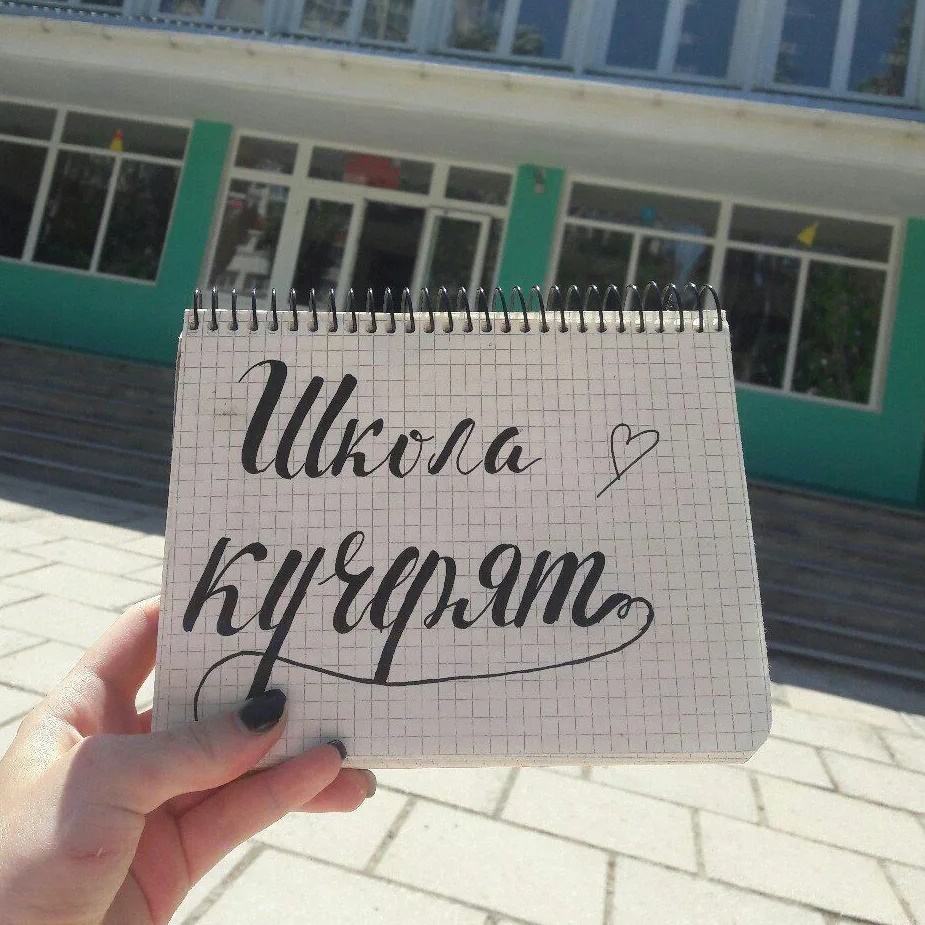 Школа
кучерят